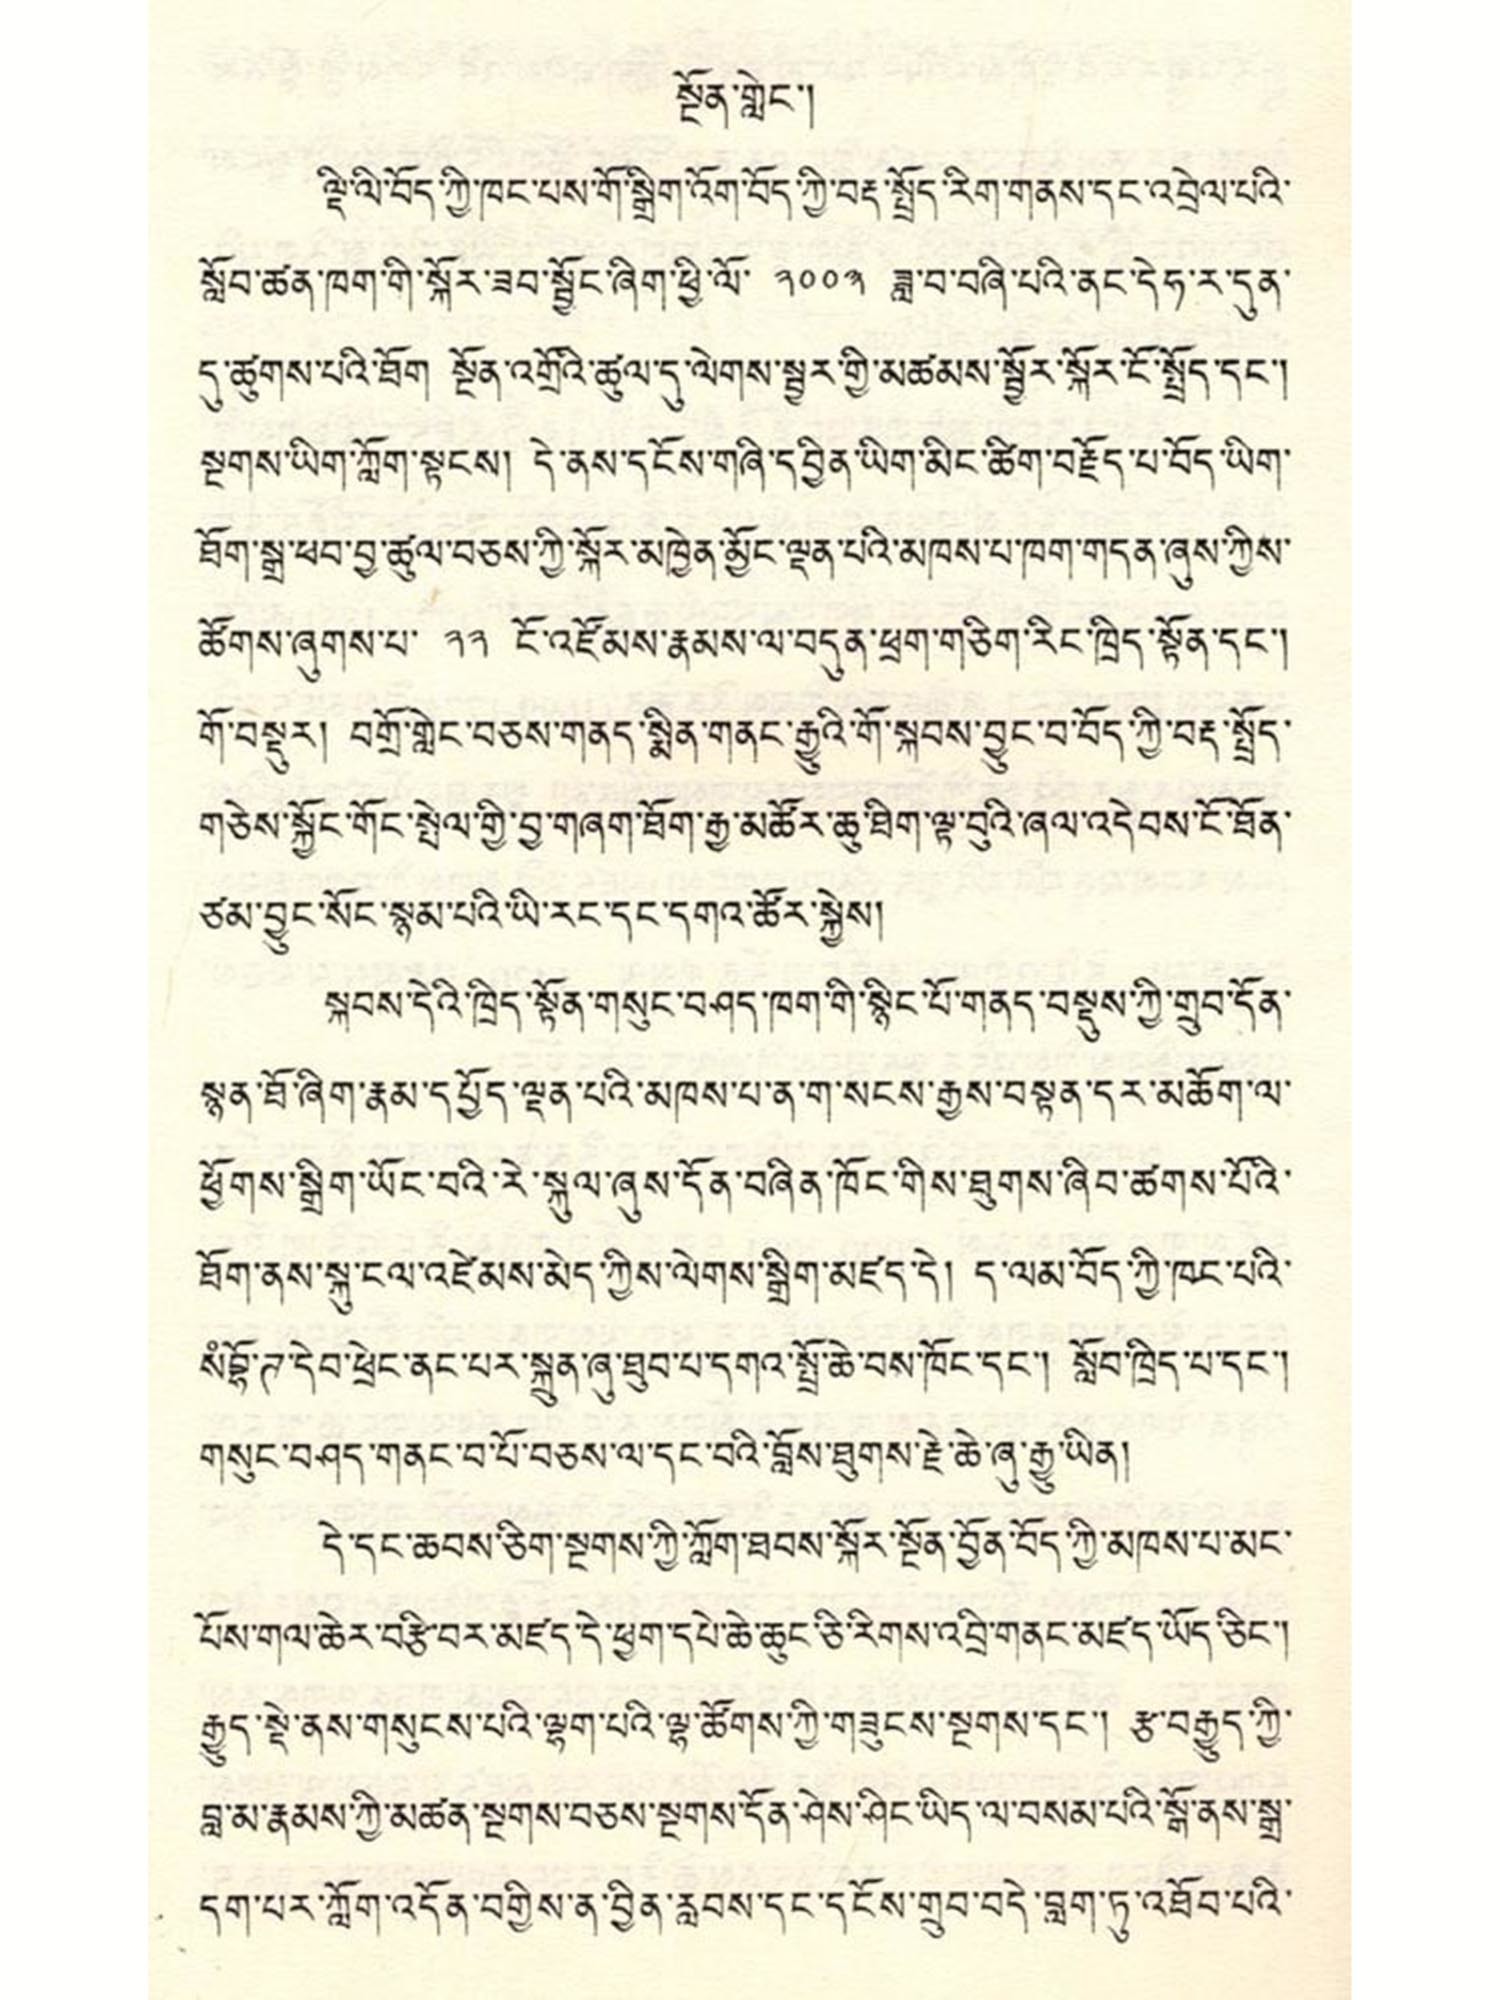 སྔོན་གླེང་།
ལྡི་ལི་བོད་ཀྱི་ཁང་པས་གོ་སྒྲིག་འོག་བོད་ཀྱི་བརྡ་སྤྲོད་རིག་གནས་དང་འབྲེལ་པའི་
སློབ་ཚན་ཁག་གི་སྐོར་ཟབ་སྦྱོང་ཞིག་ཕྱི་ལོ་ ༢༠༠༣ ཟླ་བ་བཞི་པའི་ནང་དེཧ་ར་དུན་
དུ་ཚུགས་པའི་ཐོག སྔོན་འགྲོའི་ཚུལ་དུ་ལེགས་སྦྱར་གྱི་མཚམས་སྦྱོར་སྐོར་ངོ་སྤྲོད་དང་།
སྔགས་ཡིག་ཀློག་སྟངས། དེ་ནས་དངོས་གཞི་དབྱིན་ཡིག་མིང་ཚིག་བརྗོད་པ་བོད་ཡིག་
ཐོག་སྒྲ་ཕབ་བྱ་ཚུལ་བཅས་ཀྱི་སྐོར་མཁྱེན་མྱོང་ལྡན་པའི་མཁས་པ་ཁག་གདན་ཞུས་ཀྱིས་
ཚོགས་ཞུགས་པ་ ༢༢ ངོ་འཛོམས་རྣམས་ལ་བདུན་ཕྲག་གཅིག་རིང་ཁྲིད་སྟོན་དང་།
གོ་བསྡུར། བགྲོ་གླེང་བཅས་གནད་སྨིན་གནང་རྒྱུའི་གོ་སྐབས་བྱུང་བ་བོད་ཀྱི་བརྡ་སྤྲོད་
གཅེས་སྐྱོང་གོང་སྤེལ་གྱི་བྱ་གཞག་ཐོག་རྒྱ་མཚོར་ཆུ་ཐིག་ལྟ་བུའི་ཞལ་འདེབས་ངོ་ཐོན་
ཙམ་བྱུང་སོང་སྙམ་པའི་ཡི་རང་དང་དགའ་ཚོར་སྐྱེས།
སྐབས་དེའི་ཁྲིད་སྟོན་གསུང་བཤད་ཁག་གི་སྙིང་པོ་གནད་བསྡུས་ཀྱི་གྲུབ་དོན་
སྙན་ཐོ་ཞིག་རྣམ་དཔྱོད་ལྡན་པའི་མཁས་པ་ན་ག་སངས་རྒྱས་བསྟན་དར་མཆོག་ལ་
ཕྱོགས་སྒྲིག་ཡོང་བའི་རེ་སྐུལ་ཞུས་དོན་བཞིན་ཁོང་གིས་ཐུགས་ཞིབ་ཚགས་པོའི་
ཐོག་ནས་སྐུ་ངལ་འཛེམས་མེད་ཀྱིས་ལེགས་སྒྲིག་མཛད་དེ། ད་ལམ་བོད་ཀྱི་ཁང་པའི་
སཾབྷོ་ཊ་དེབ་ཕྲེང་ནང་པར་སྐྲུན་ཞུ་ཐུབ་པ་དགའ་སྤྲོ་ཆེ་བས་ཁོང་དང་། སློབ་ཁྲིད་པ་དང་།
གསུང་བཤད་གནང་བ་པོ་བཅས་ལ་དང་བའི་བློས་ཐུགས་རྗེ་ཆེ་ཞུ་རྒྱུ་ཡིན།
དེ་དང་ཆབས་ཅིག་སྔགས་ཀྱི་ཀློག་ཐབས་སྐོར་སྔོན་བྱོན་བོད་ཀྱི་མཁས་པ་མང་
པོས་གལ་ཆེར་བརྩི་བར་མཛད་དེ་ཕྱག་དཔེ་ཆེ་ཆུང་ཅི་རིགས་འབྲི་གནང་མཛད་ཡོད་ཅིང་།
རྒྱུད་སྡེ་ནས་གསུངས་པའི་ལྷག་པའི་ལྷ་ཚོགས་ཀྱི་གཟུངས་སྔགས་དང་། རྩ་བརྒྱུད་ཀྱི་
བླ་མ་རྣམས་ཀྱི་མཚན་སྔགས་བཅས་སྔགས་དོན་ཤེས་ཤིང་ཡིད་ལ་བསམ་པའི་སྒོ་ནས་སྒྲ་
དག་པར་ཀློག་འདོན་བགྱིས་ན་བྱིན་རླབས་དང་དངོས་གྲུབ་བདེ་བླག་ཏུ་འཐོབ་པའི་